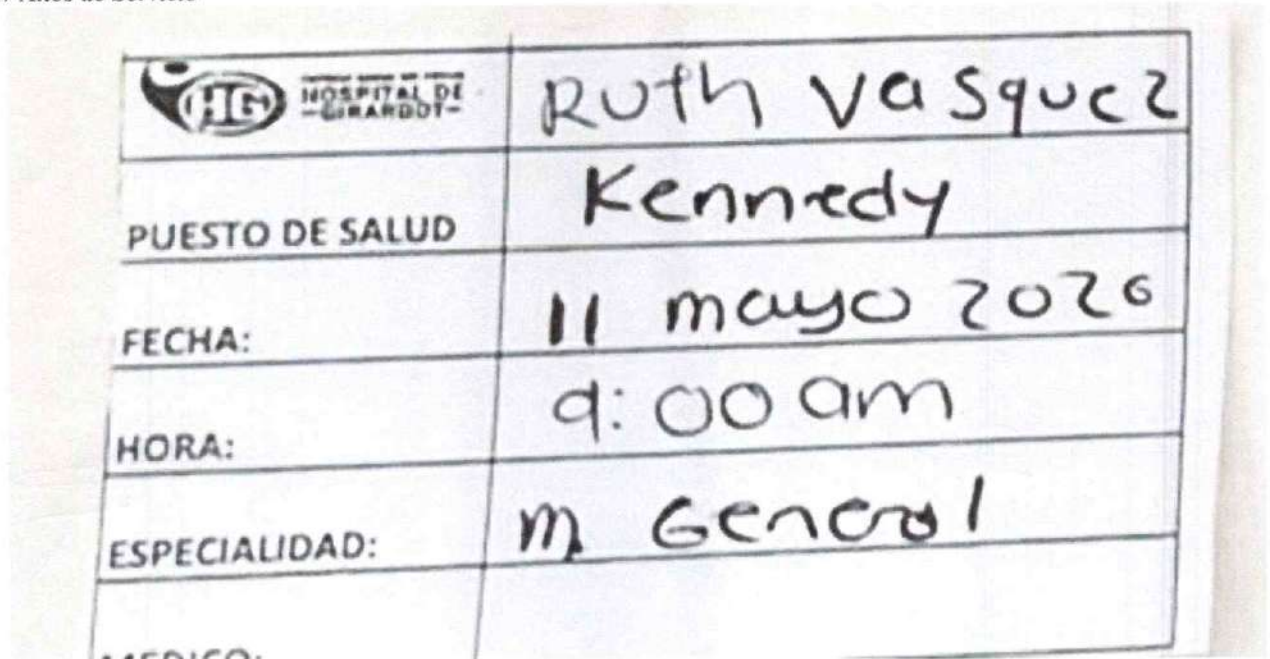 de Servicio
HG HOSPITAL DE
-GIRARDOT-
Ruth Vasquez
PUESTO DE SALUD Kennedy
FECHA: 11 mayo 2026
HORA: 9:00 am
ESPECIALIDAD: m General
MEDICO: